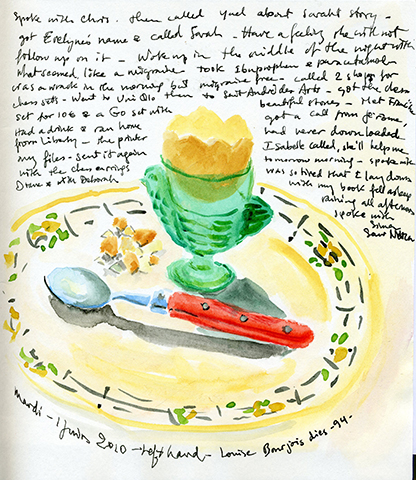 Spoke with Chris. Then called Yael about Sarah's story -
got Evelyne's name & called Sarah - Have a feeling she will not
follow up on it - Woke up in the middle of the night with
what seemed like a migraine - took ibuprophen & paracetamole
was a wreck in the morning but migraine free - called 2 shops for
chess sets - Want to Uni Qlo then to Saint André des Arts - got the chess
set for 10€ & a Go set with beautiful stones - Met
Had a drink & ran home got a call from Jerome,
from Library - the printer had never downloaded
my files - sent it again Isabelle called, she'll help me
with the chess earrings tomorrow morning - spoke with
Diane & Deborah was so tired that I lay down
with my book fell asleep
raining all afternoon
spoke with
mardi - 1 Juin 2010 - left hand - Louise Bourjois dies - 94 -